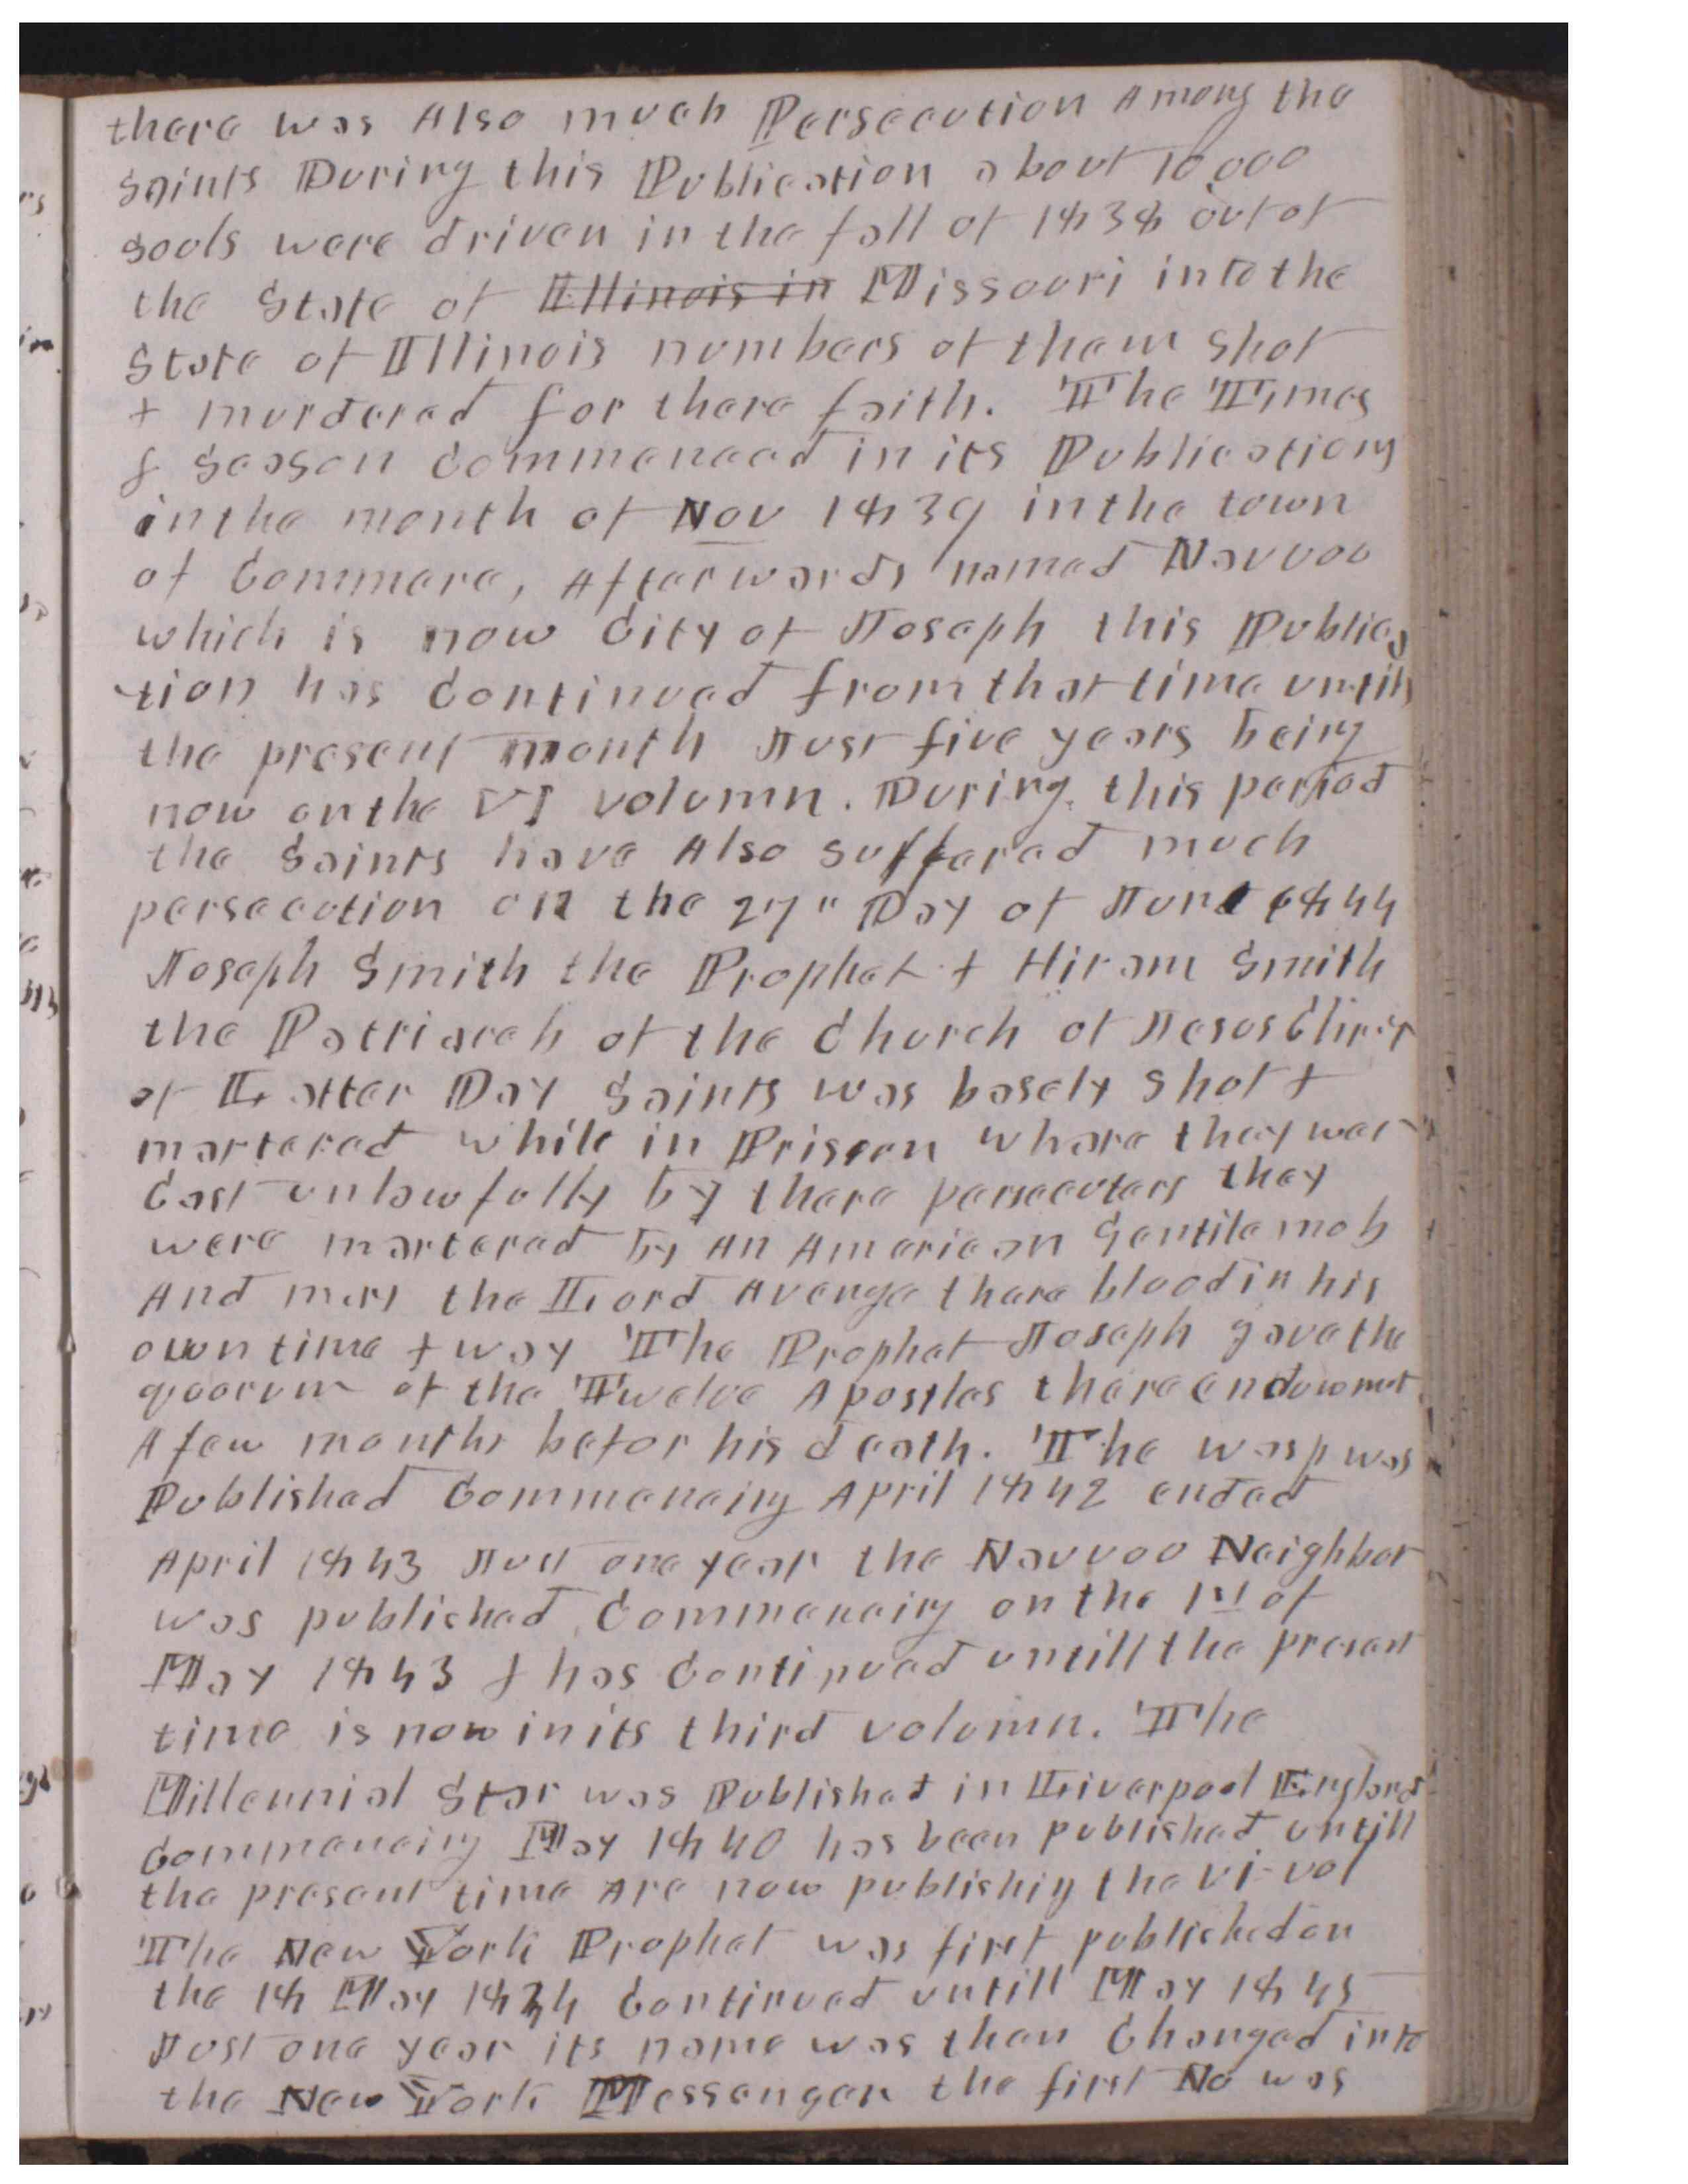 there was Also much Persecution Among the
Saints During this Publication about 10,000
souls were driven in the fall of 1838 out of
the State of Illinois in Missouri into the
State of Illinois numbers of them shot
+ murdered for there faith. The Times
& Season Commenced in its Publication
in the month of Nov 1839 in the town
of Commerce, Afterwards named Nauvoo
which is now City of Joseph this Publica
-tion has Continued from that time untill
the present month Just five years being
now on the VI volumn. During this period
the Saints have Also suffered much
persecution on the 27" Day of June 1844
Joseph Smith the Prophet + Hiram Smith
the Patriarch of the Church of Jesus Christ
of Latter Day Saints was basely shot +
martered while in Prison whare they wer
Cast unlawfully by there persecutors they
were martered by An American Gentile mob
And may the Lord Avenge there blood in his
own time + way The Prophet Joseph gave the
quorum of the Twelve Apostles there endowmet
A few months befor his death. The wasp was
Published Commencing April 1842 ended
April 1843 Just one year the Nauvoo Neighbor
was published Commencing on the 1st of
May 1843 & has Continued untill the present
time is now in its third volumn. The
Millennial Star was Published in Liverpool England
Commencing May 1840 has been published untill
the present time Are now publishing the VI vol
The New York Prophet was first published on
the 18 May 1844 Continued untill May 1845
Just one year its name was then Changed into
the New York Messenger the first No was